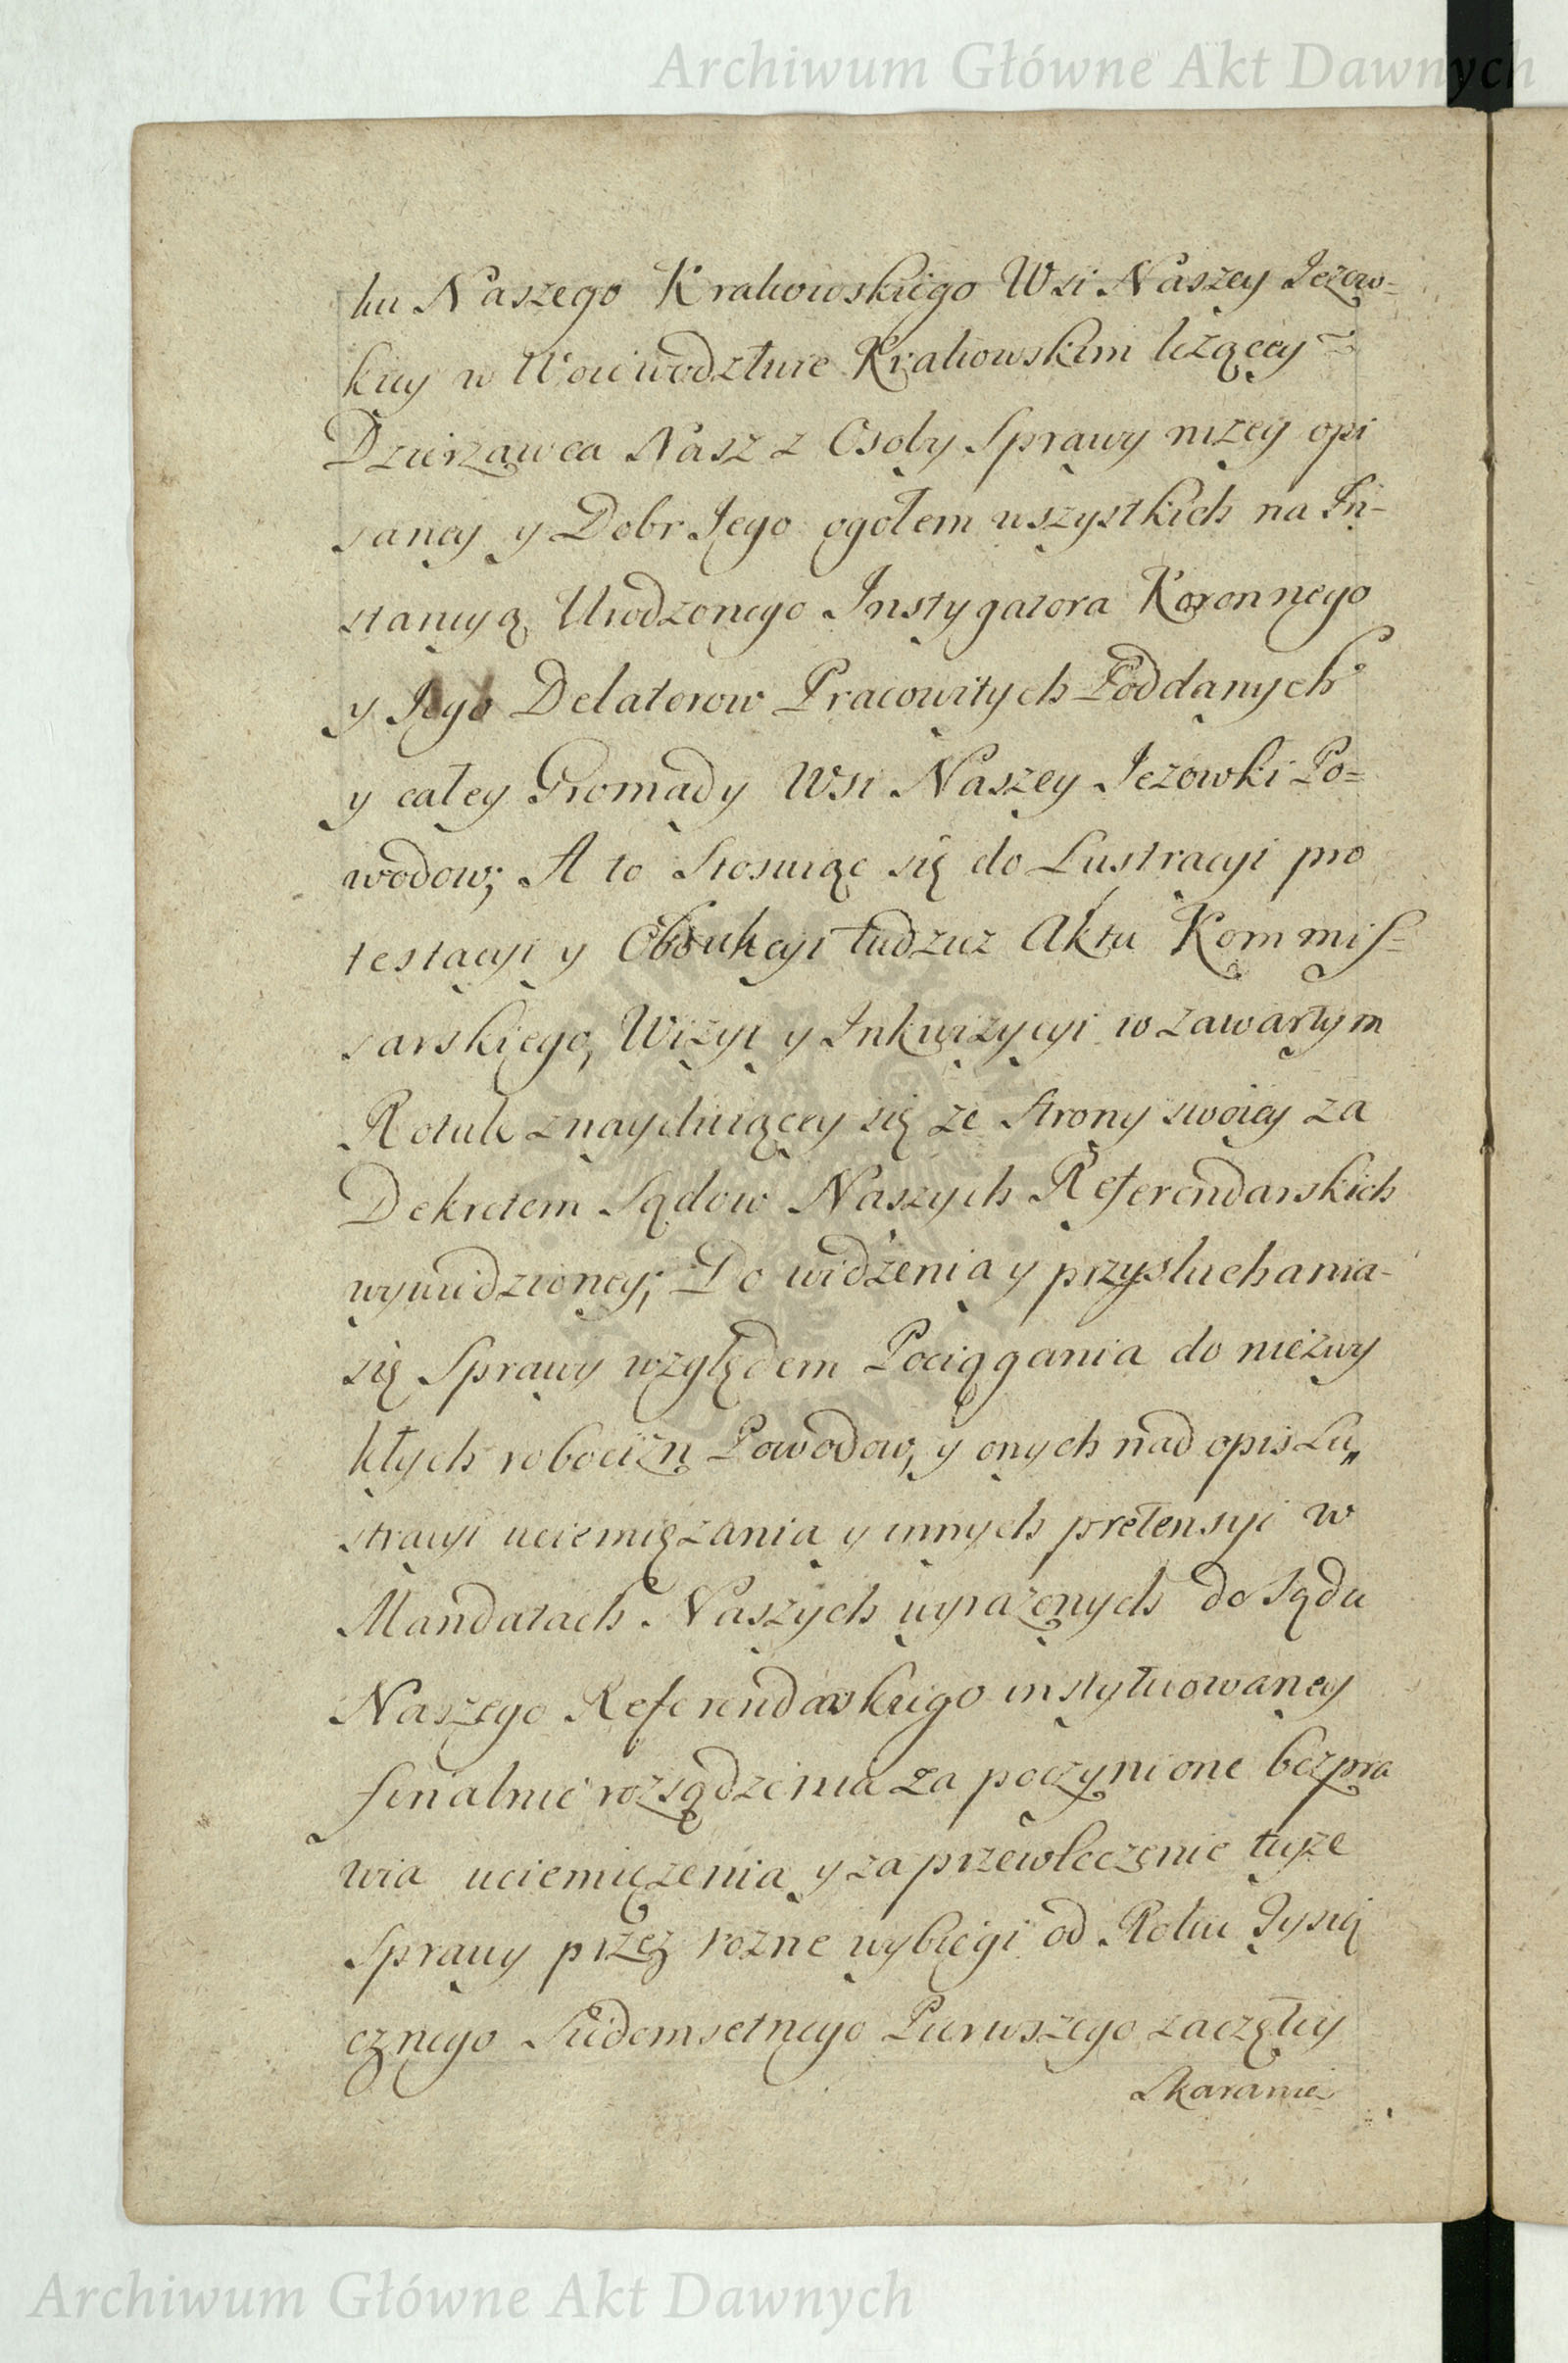 Archiwum Główne Akt Dawnych
ku Naszego Krakowskiego Wsi Naszey Jezow=
kiey w Woiewodztwie Krakowskim leżącey
Dzierzawca Nasz z Osoby Sprawy nizey opi
saney y Dobr Jego ogołem wszystkich na In-
stancyą Urodzonego Instygatora Koronnego
y Jego Delatorow Pracowitych Poddanych
y całey Gromady Wsi Naszey Jezowki Po=
wodow; A to Stosuiąc się do Lustracyi pro
testacyi y Obdukcyi tudziez Aktu Kommis=
sarskiego, Wizyi y Inkwizycyi w zawartym
Rotule znayduiącey się ze Strony swoiey za
Dekretem Sądow Naszych Referendarskich
wywiedzioney; Do widzenia y przysłuchania-
się Sprawy względem Pociągania do niezwy
kłych robocizn Powodow, y onych nad opis Lu„
stracyi uciemięzania y innych pretensyi w
Mandatach Naszych wyrazonych do Sądu
Naszego Referendarskiego instytuowaney
finalnie rozsądzenia za poczynione bezpra
wia uciemięzenia y za przewleczenie teyze
Sprawy przez rozne wybiegi od Roku Tysią
cznego Siedemsetnego Pierwszego zaczętey
Skaranie
Archiwum Główne Akt Dawnych